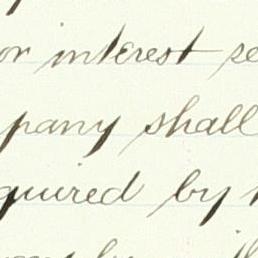 or interest se
pany shall
quired by